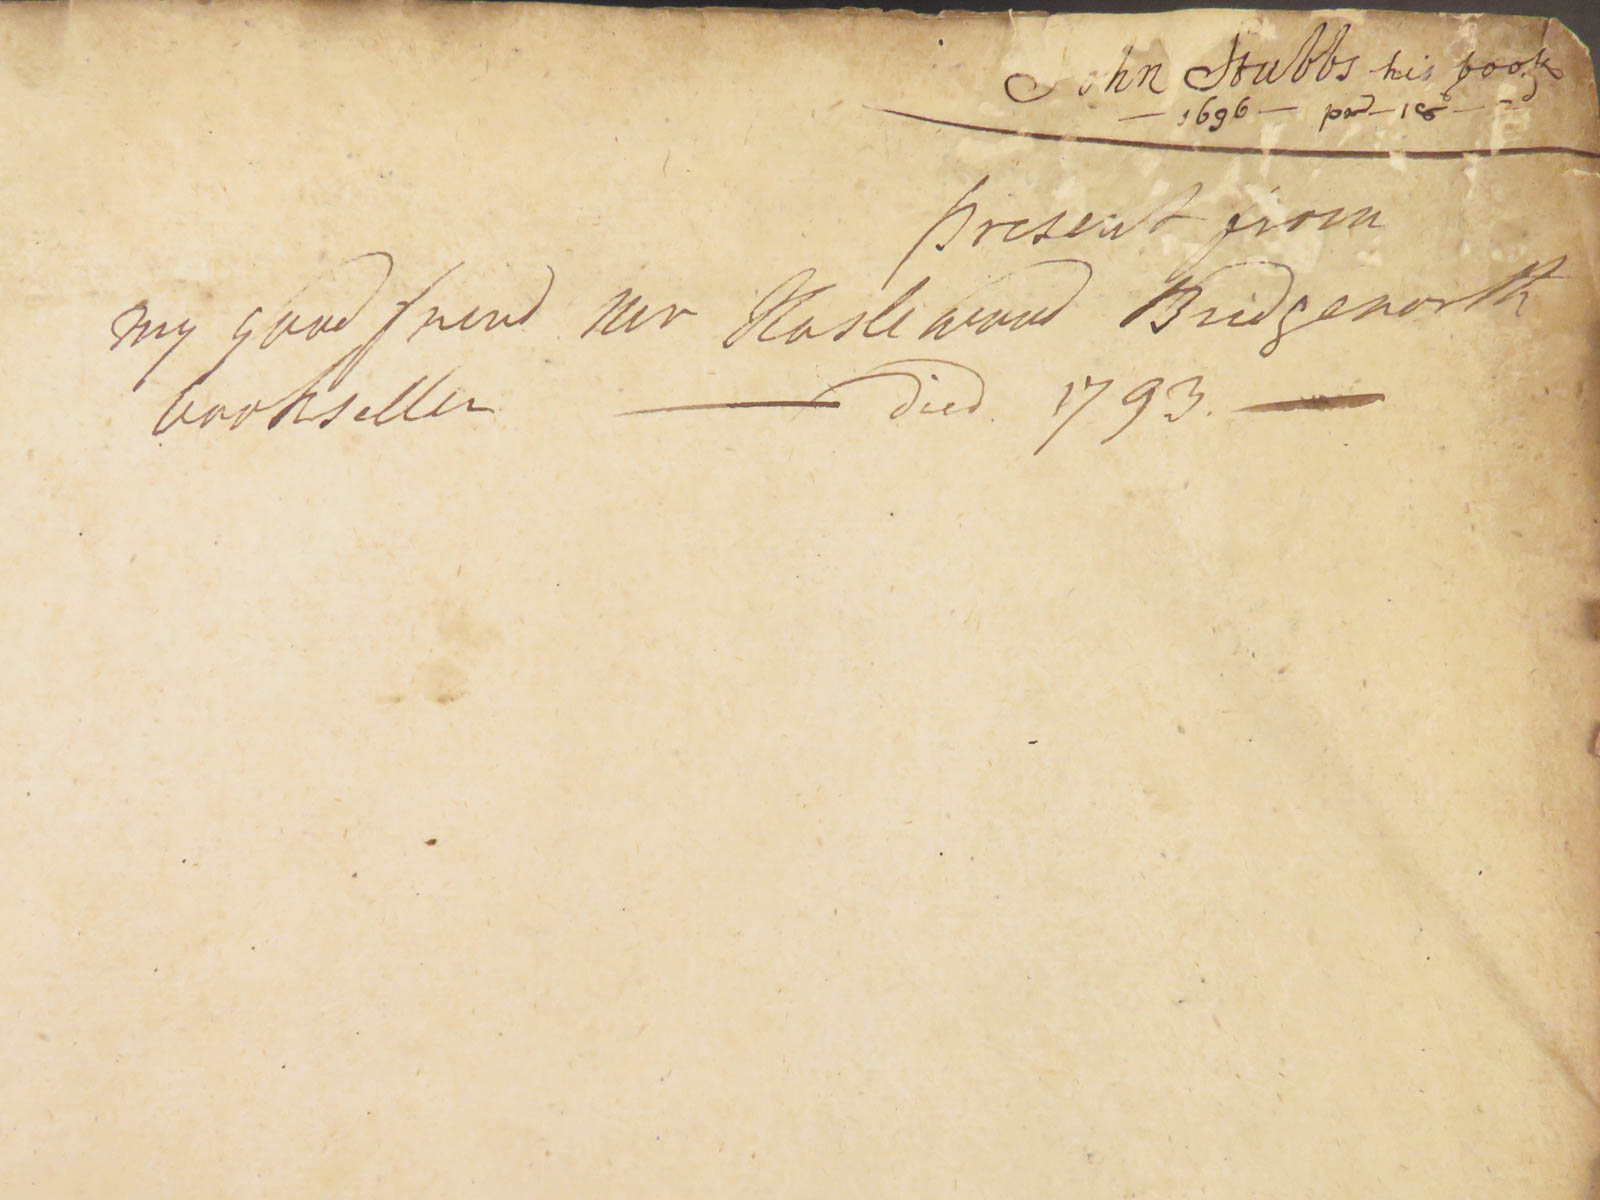 John Stubbs his book
— 1696 — pr
present from
my good friend Mr Haslewood Bridgenorth
bookseller — died. 1793. —